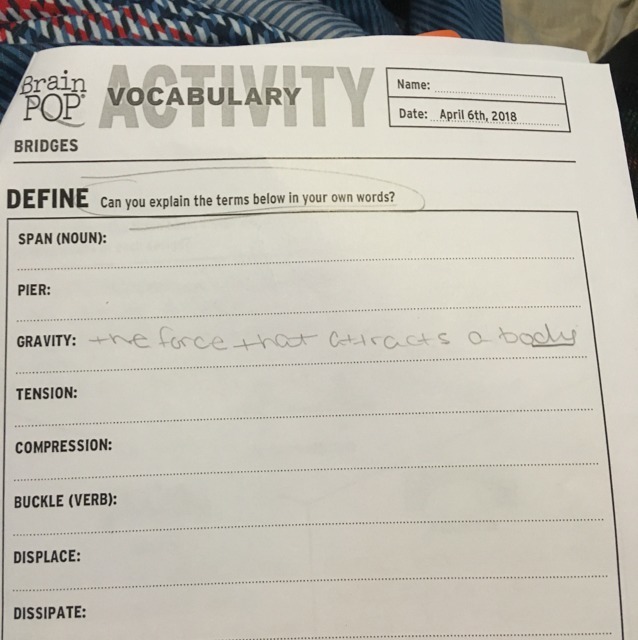 Brain
POP®
ACTIVITY
VOCABULARY
Name:
Date: April 6th, 2018
BRIDGES
DEFINE Can you explain the terms below in your own words?
SPAN (NOUN):
PIER:
GRAVITY: the force that attracts a body
TENSION:
COMPRESSION:
BUCKLE (VERB):
DISPLACE:
DISSIPATE: